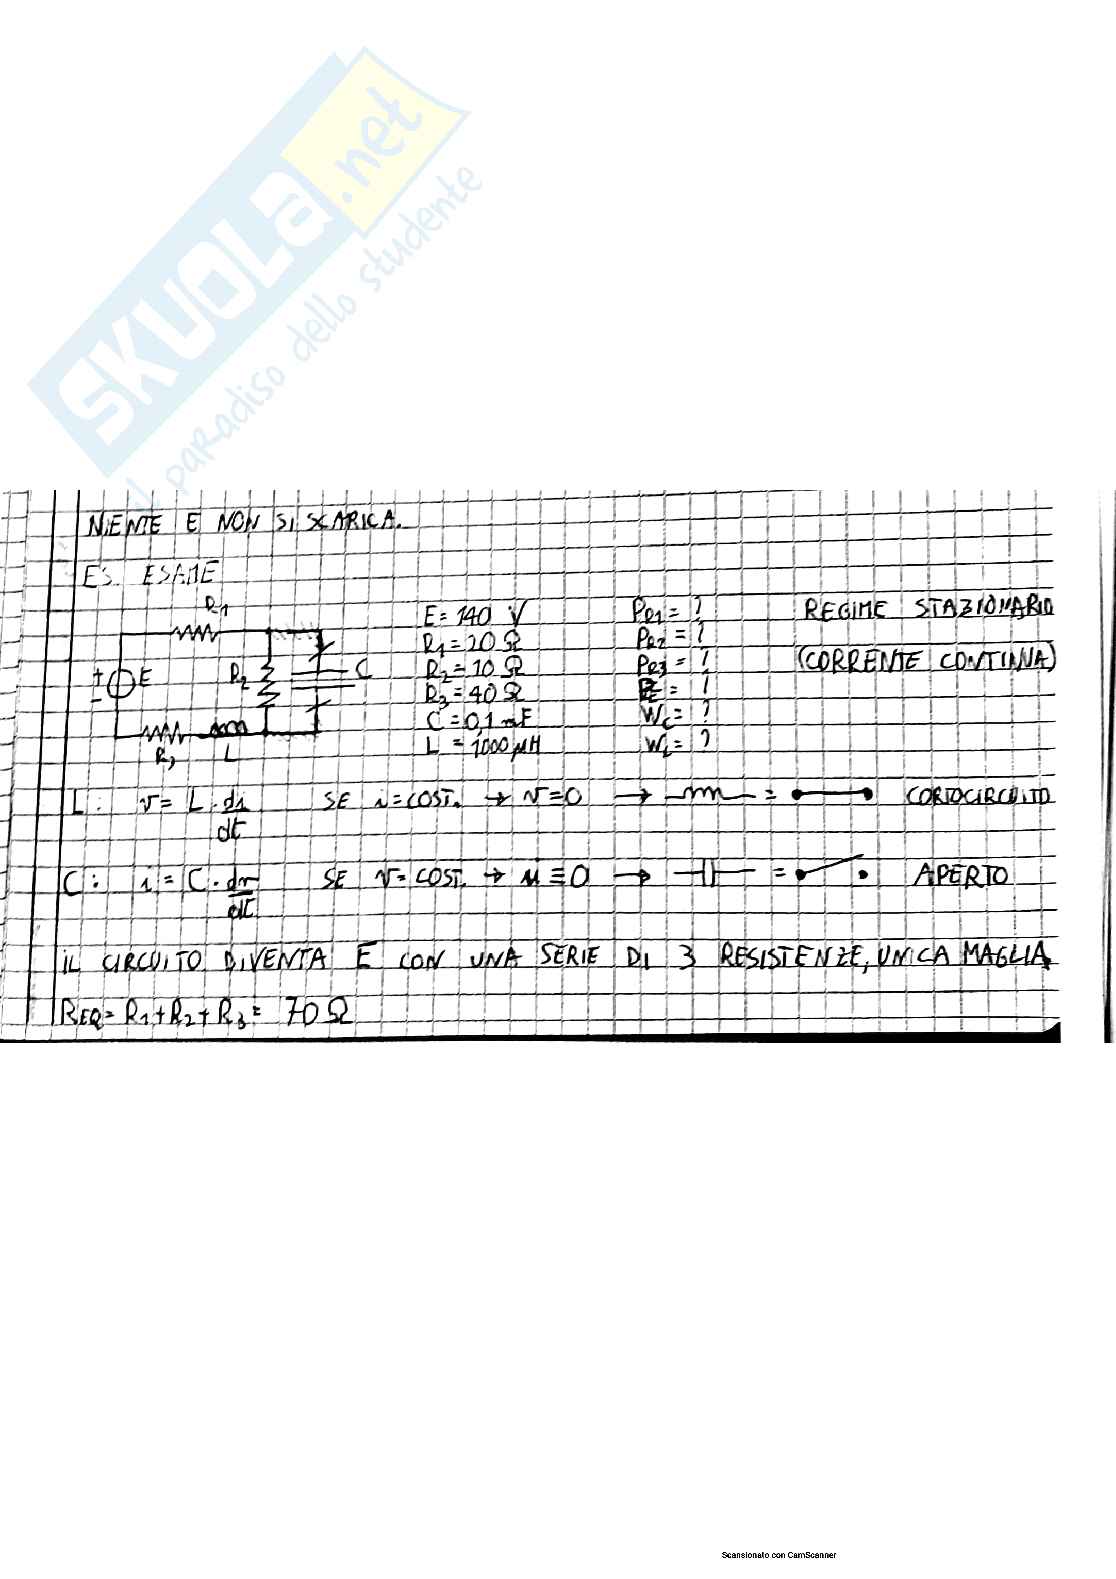 SKUOLA.net
il paradiso dello studente
NIENTE E NON SI SCARICA.
ES. ESAME
R1
E
R2
C
R3
L
+
-
E = 140 V
R1 = 20 Ω
R2 = 10 Ω
R3 = 40 Ω
C = 0,1 mF
L = 1000 μH
PR1 = ?
PR2 = ?
PR3 = ?
PE = ?
WC = ?
WL = ?
REGIME STAZIONARIO
(CORRENTE CONTINUA)
L: v = L · di/dt SE i = COST. → v = 0 → = CORTOCIRCUITO
C: i = C · dv/dt SE v = COST. → i ≡ 0 → = APERTO
IL CIRCUITO DIVENTA E CON UNA SERIE DI 3 RESISTENZE, UNICA MAGLIA
REQ = R1 + R2 + R3 = 70 Ω
Scansionato con CamScanner